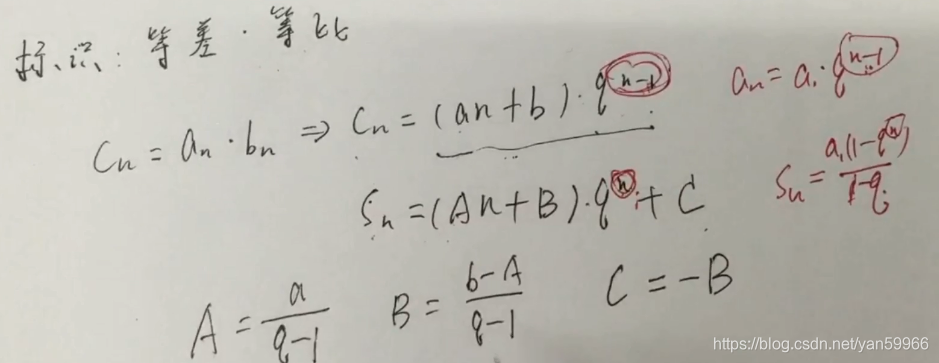 标识：等差·等比
Cₙ = aₙ · bₙ ⇒ Cₙ = (an+b)·qⁿ⁻¹
aₙ = a₁·qⁿ⁻¹
Sₙ = (An+B)·qⁿ + C
Sₙ = a₁(1-qⁿ)/1-q
A = a/q-1 B = b-A/q-1 C = -B
https://blog.csdn.net/yan59966